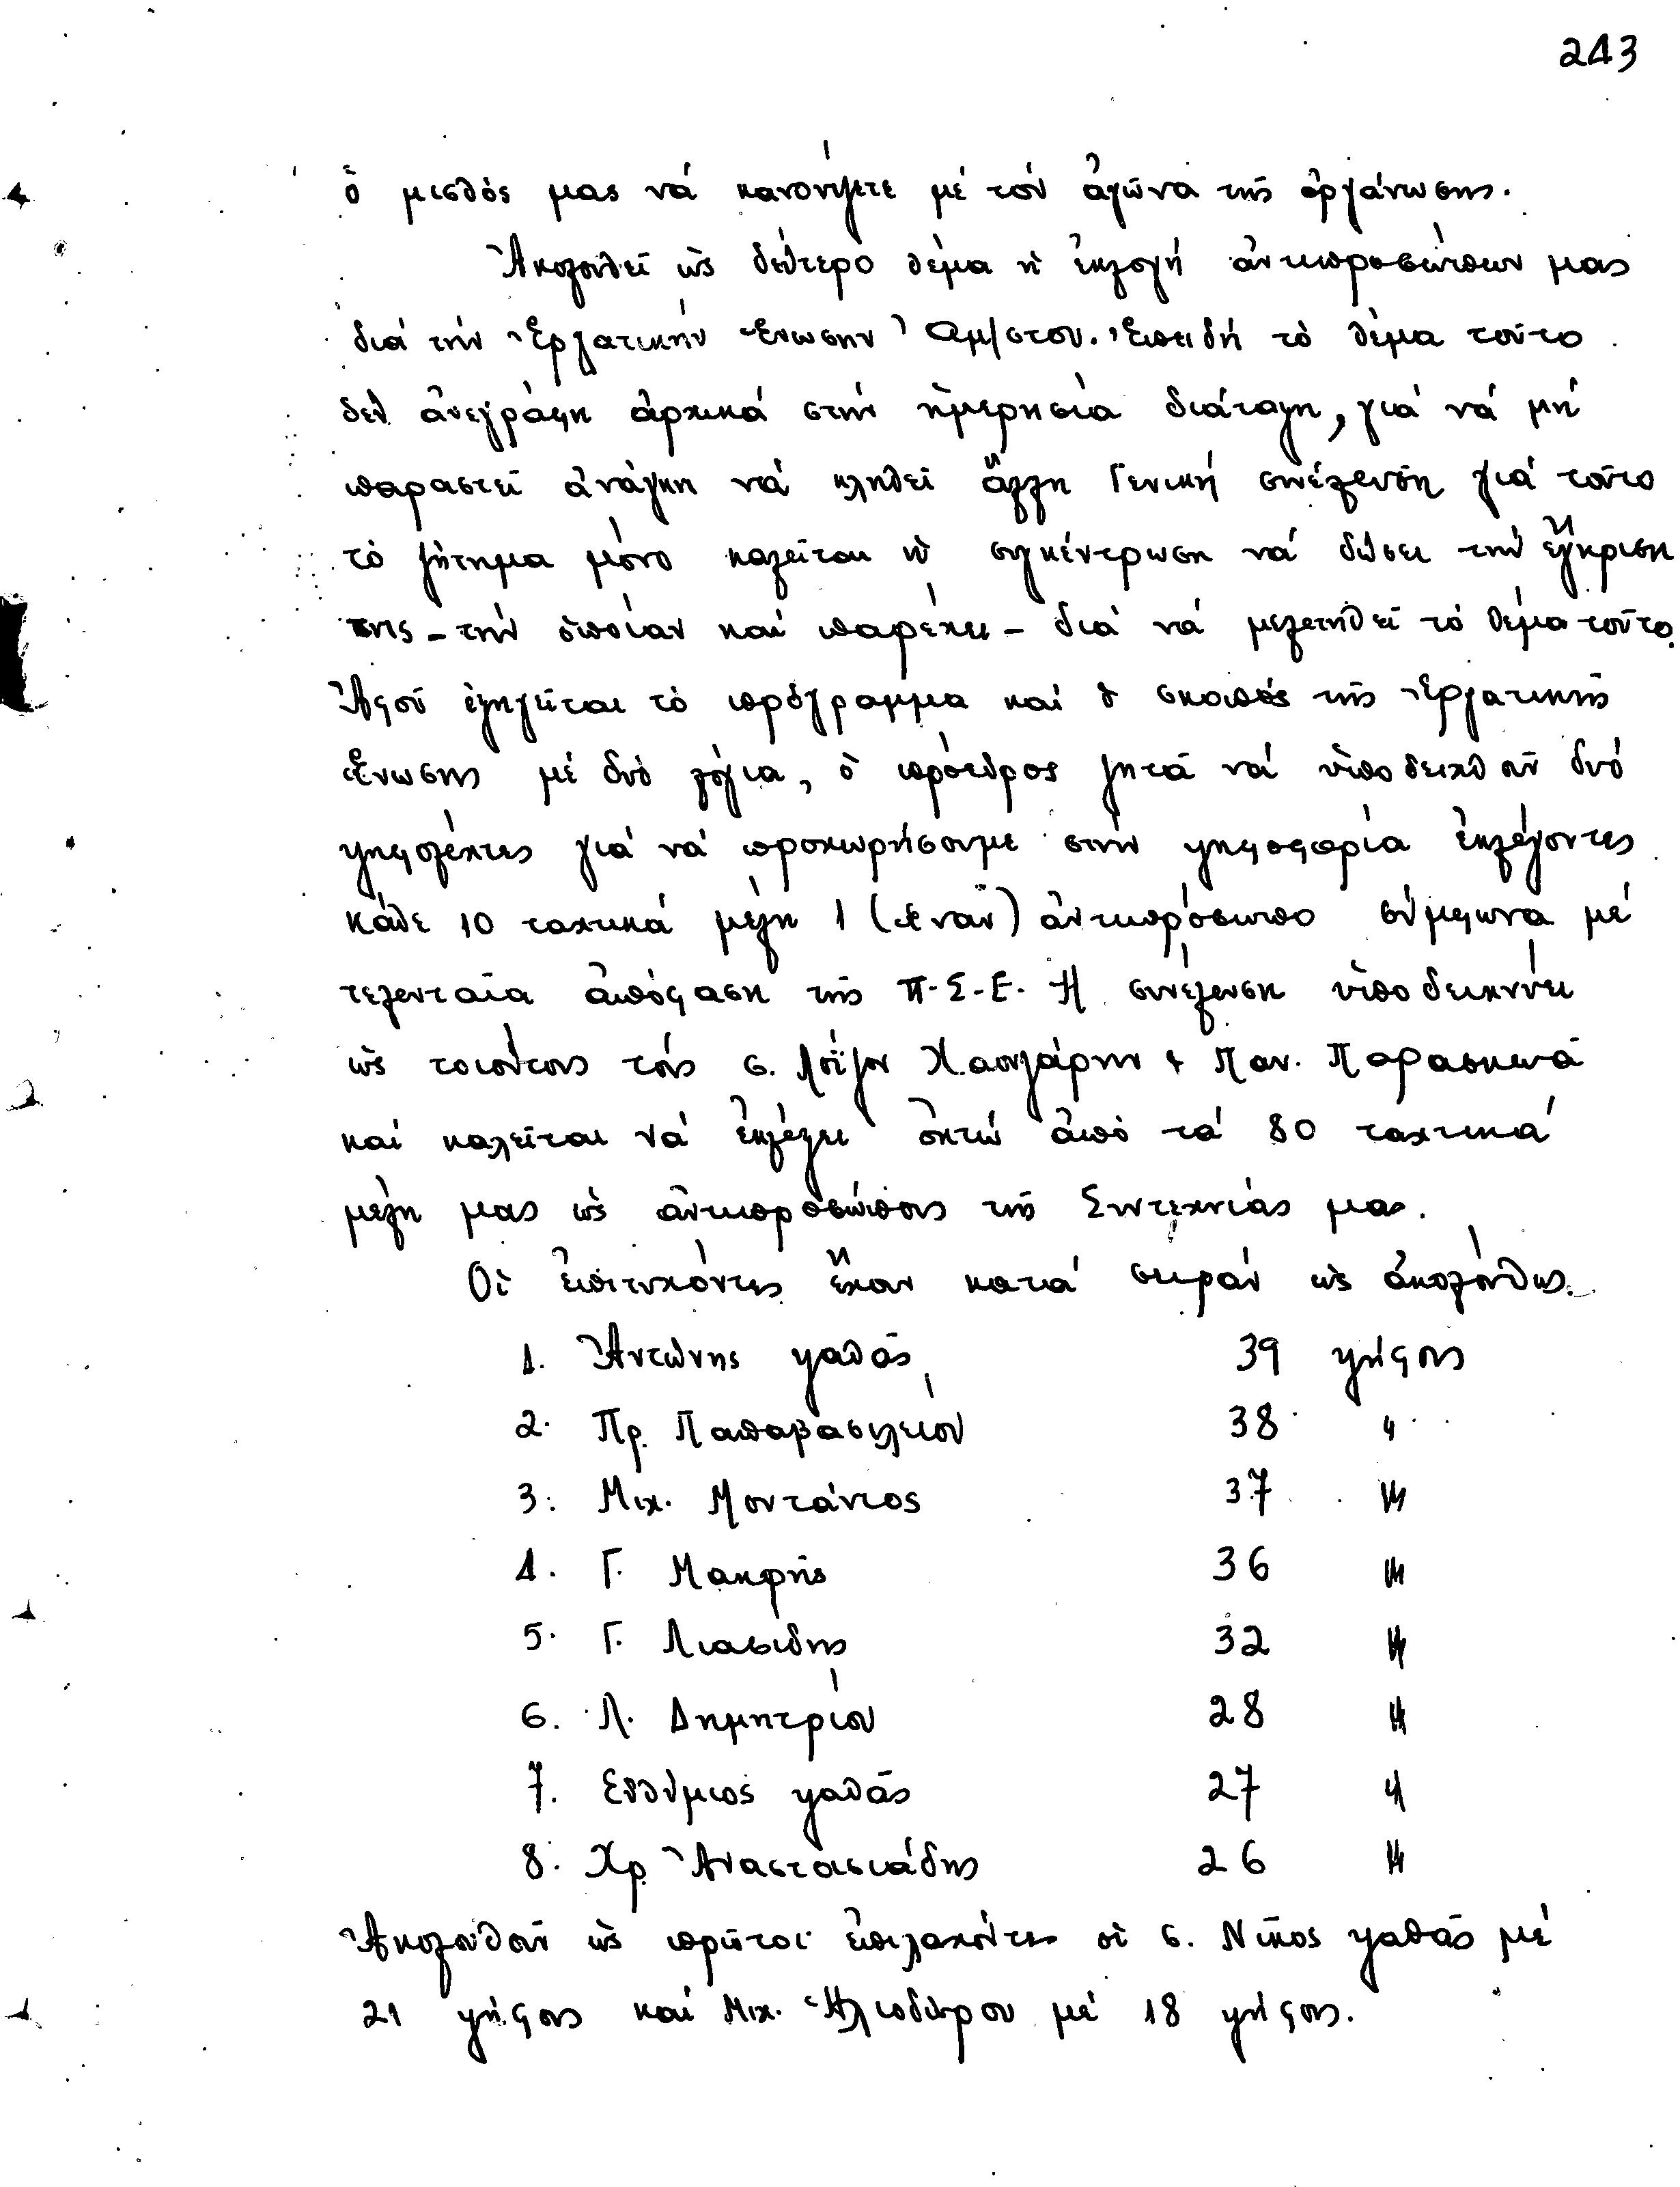 243
ὁ μισθός μας νά κανονίζετε μέ τόν ἀγῶνα τῆς ὀργάνωσης.
Ἀκολουθεῖ ὡς δεύτερο θέμα ἡ ἐκλογή ἀντιπροσώπων μας
διά τήν Ἐργατικήν Ἕνωσην Ἀμ/στου. Ἐπειδή τό θέμα τοῦτο
δέν ἀνεγράφη ἀρχικά στήν ἡμερησία διάταξη, γιά νά μή
παραστεῖ ἀνάγκη νά κληθεῖ ἄλλη Γενική συνέλευση γιά τοῦτο
τό ζήτημα μόνο καλεῖται ἡ συγκέντρωση νά δώσει τήν ἔγκριση
της - τήν ὁποίαν καί παρέχει - διά νά μελετηθεῖ τό θέμα τοῦτο.
Ἀφοῦ ἐξηγεῖται τό πρόγραμμα καί ὁ σκοπός τῆς Ἐργατικῆς
Ἕνωσης μέ δυό λόγια, ὁ πρόεδρος ζητᾶ νά ὑποδειχθοῦν δυό
ψηφολέκτες γιά νά προχωρήσουμε στήν ψηφοφορία ἐκλέγοντες
κάθε 10 ταχτικά μέλη 1 (ἕναν) ἀντιπρόσωπο σύμφωνα μέ
τελευταία ἀπόφαση τῆς Π.Σ.Ε. Ἡ συνέλευση ὑποδεικνύει
ὡς τοιούτους τούς σ. Λοΐζον Χαουλάρην & Παν. Παρασκευᾶ
καί καλεῖται νά ἐκλέξει ὀκτώ ἀπό τά 80 ταχτικά
μέλη μας ὡς ἀντιπροσώπους τῆς Συντεχνίας μας.
Οἱ ἐπιτυχόντες ἔχουν κατά σειράν ὡς ἀκολούθως.
1. Ἀντώνης ψαθᾶς 39 ψήφους
2. Πρ. Παπαβασιλείου 38 "
3. Μιχ. Μοντάνιος 37 "
4. Γ. Μακρῆς 36 "
5. Γ. Λιασίδης 32 "
6. Λ. Δημητρίου 28 "
7. Εὐθύμιος ψαθᾶς 27 "
8. Χρ. Ἀναστασιάδης 26 "
Ἀκολουθοῦν ὡς πρῶτοι ἐπιλαχόντες οἱ σ. Νῖκος ψαθᾶς μέ
21 ψήφους καί Μιχ. Ἡλιοδώρου μέ 18 ψήφους.